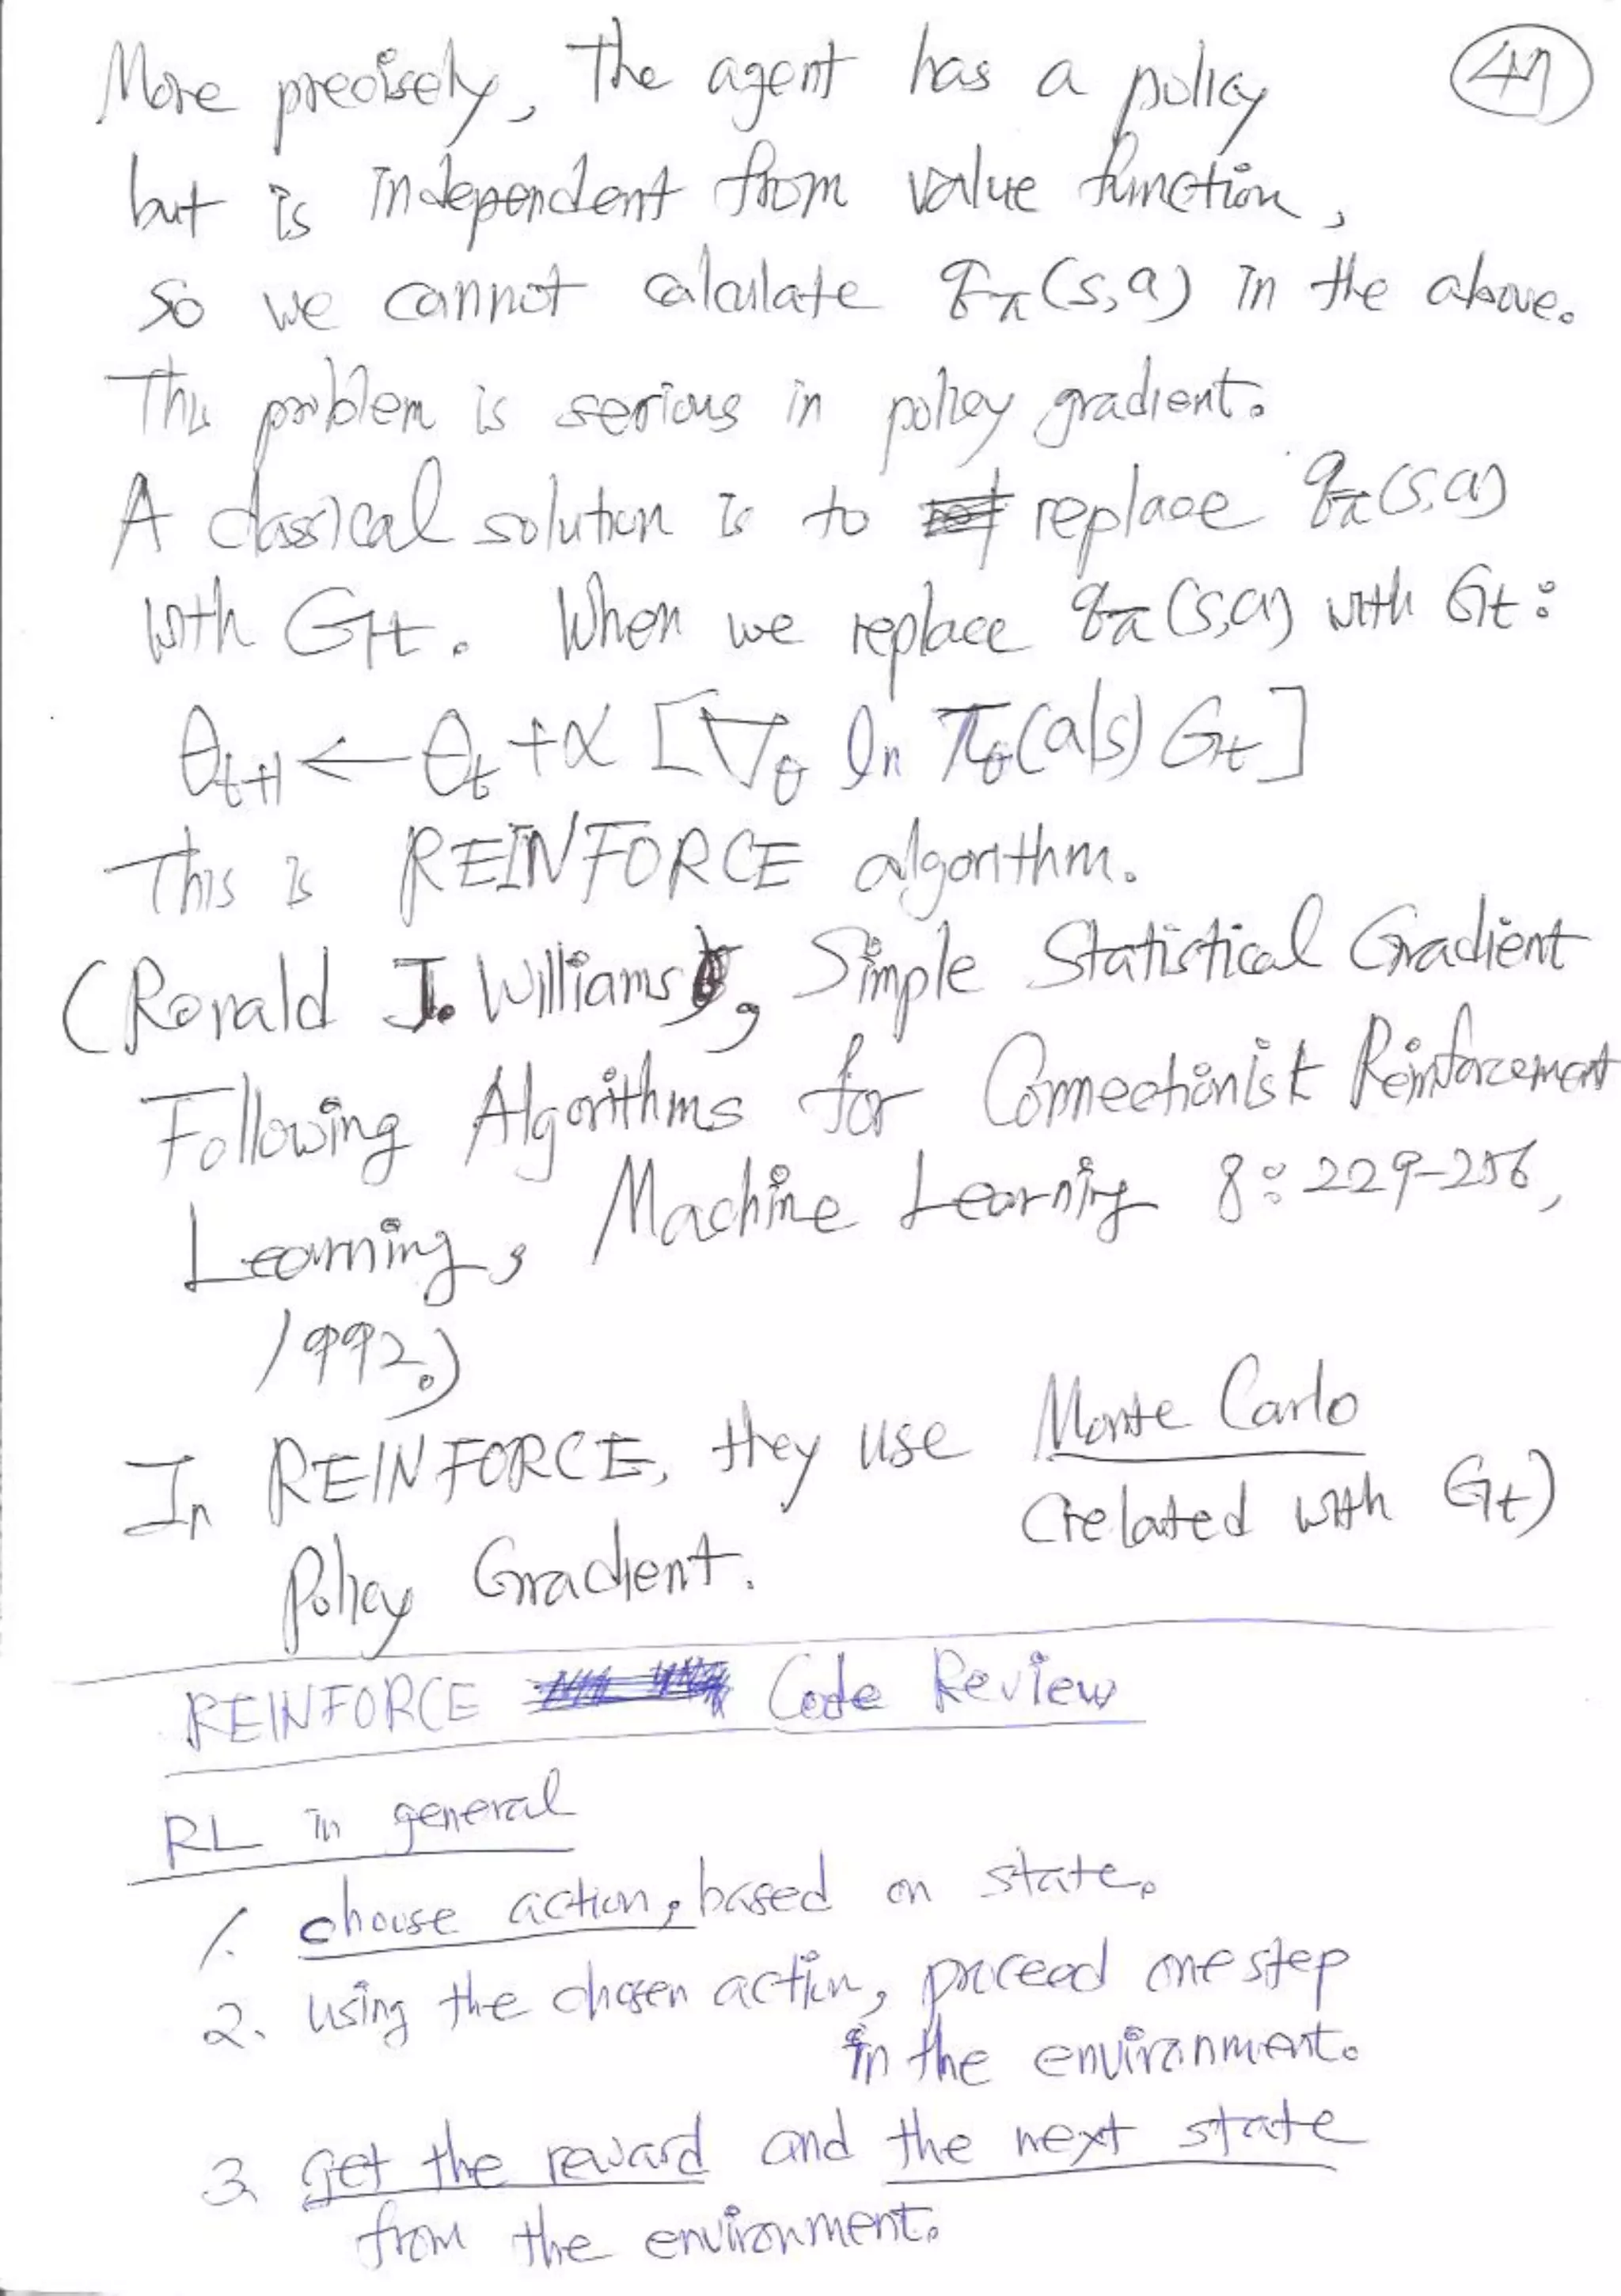 More precisely, The agent has a policy
47
but is independent from value function,
so we cannot calculate q_π(s,a) in the above.
This problem is serious in policy gradient.
A classical solution is to replace q_π(s,a)
with G_t. When we replace q_π(s,a) with G_t:
θ_{t+1} ← θ_t + α [∇_θ ln π_θ(a|s) G_t]
This is REINFORCE algorithm.
(Ronald J. Williams, Simple Statistical Gradient
Following Algorithms for Connectionist Reinforcement
Learning, Machine Learning 8:229-256,
1992.)
In REINFORCE, they use Monte Carlo
(related with G_t)
Policy Gradient.
REINFORCE Code Review
RL in general
1. choose action, based on state.
2. using the chosen action, proceed one step
in the environment.
3. get the reward and the next state
from the environment.